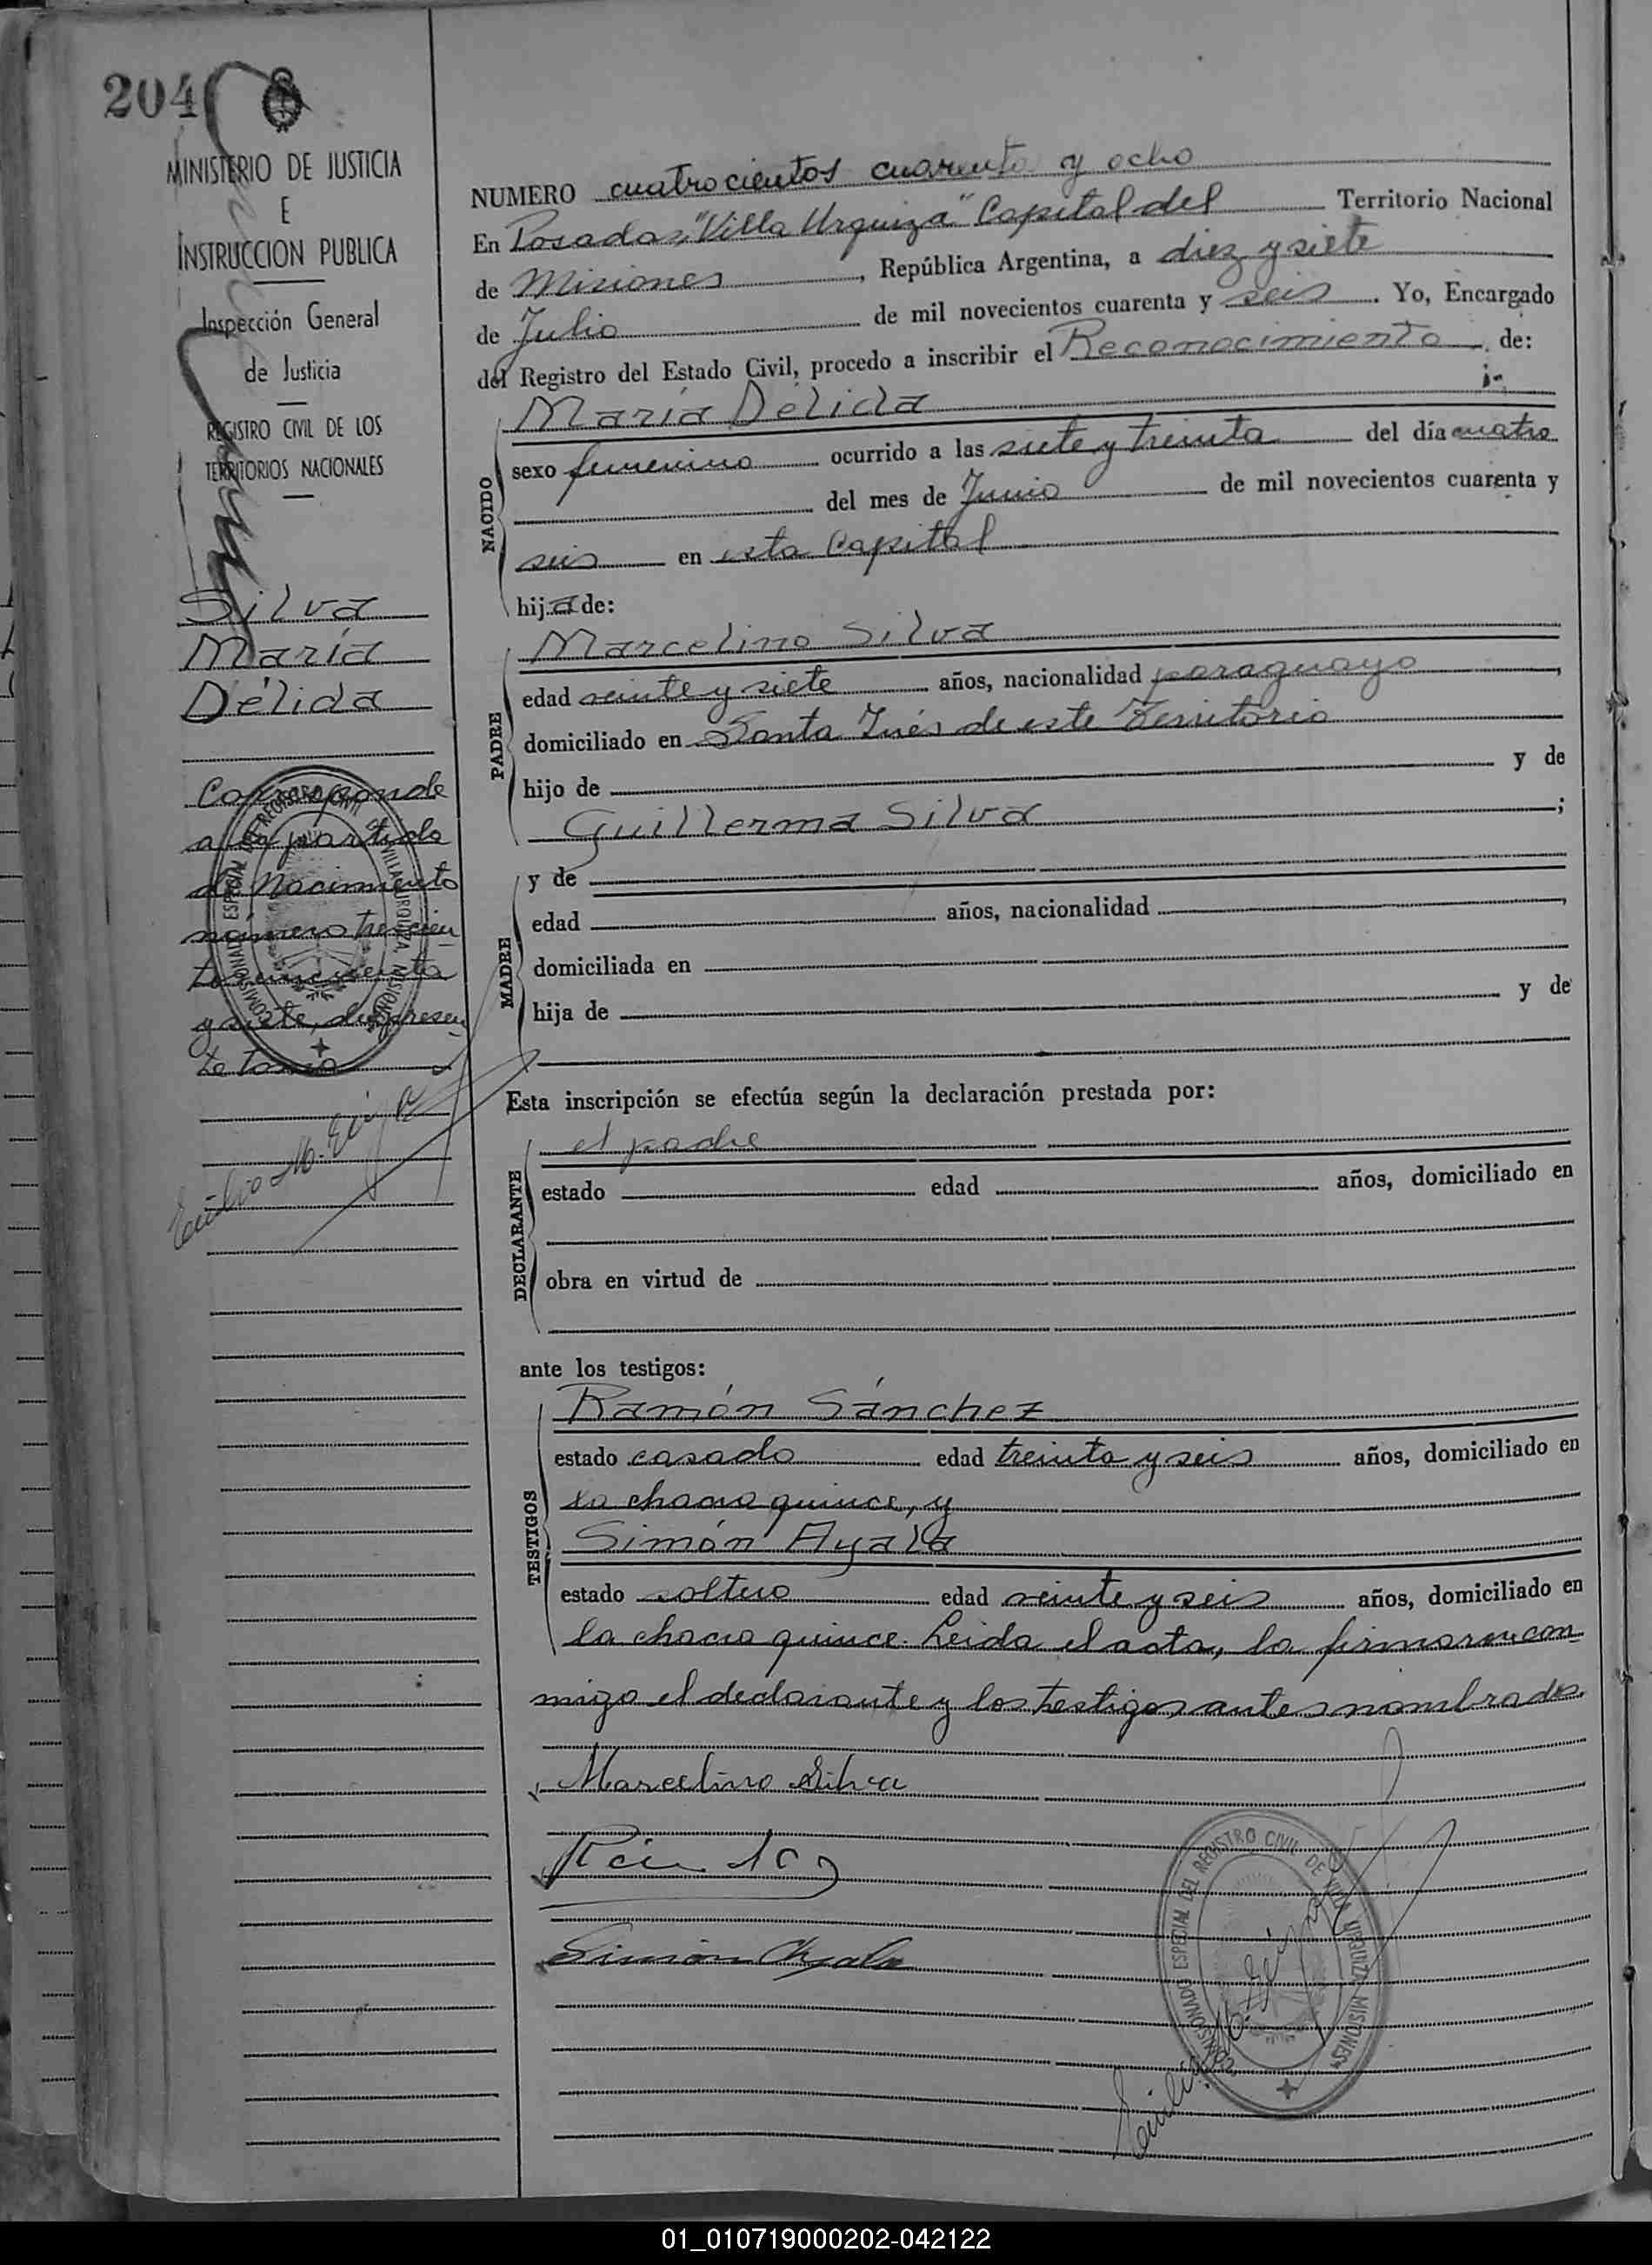 204
MINISTERIO DE JUSTICIA
E
INSTRUCCION PUBLICA
Inspección General
de Justicia
REGISTRO CIVIL DE LOS
TERRITORIOS NACIONALES
Silva
María
Délida
Corresponde
a la partida
de Nacimiento
número trescien
tos cincuenta
y siete, del presen
te tomo
NUMERO cuatrocientos cuarenta y ocho
En Posadas, "Villa Urquiza" Capital del Territorio Nacional
de Misiones, República Argentina, a diez y siete
de Julio de mil novecientos cuarenta y seis. Yo, Encargado
del Registro del Estado Civil, procedo a inscribir el Reconocimiento de:
María Délida
NACIDO
sexo femenino ocurrido a las siete y treinta del día cuatro
del mes de Junio de mil novecientos cuarenta y
seis en esta Capital
hija de:
PADRE
Marcelino Silva
edad veinte y siete años, nacionalidad paraguayo,
domiciliado en Santa Inés de este Territorio
hijo de y de
Guillerma Silva;
MADRE
y de
edad años, nacionalidad,
domiciliada en
hija de y de
Esta inscripción se efectúa según la declaración prestada por:
DECLARANTE
el padre
estado edad años, domiciliado en
obra en virtud de
ante los testigos:
TESTIGOS
Ramón Sánchez
estado casado edad treinta y seis años, domiciliado en
la chacra quince, y
Simón Ayala
estado soltero edad veinte y seis años, domiciliado en
la chacra quince. Leida el acta, la firmaron con
migo el declarante y los testigos antes nombrados.
Marcelino Silva
Simón Ayala
COMISIONADO ESPECIAL DEL REGISTRO CIVIL DE VILLA URQUIZA MISIONES
01_010719000202-042122